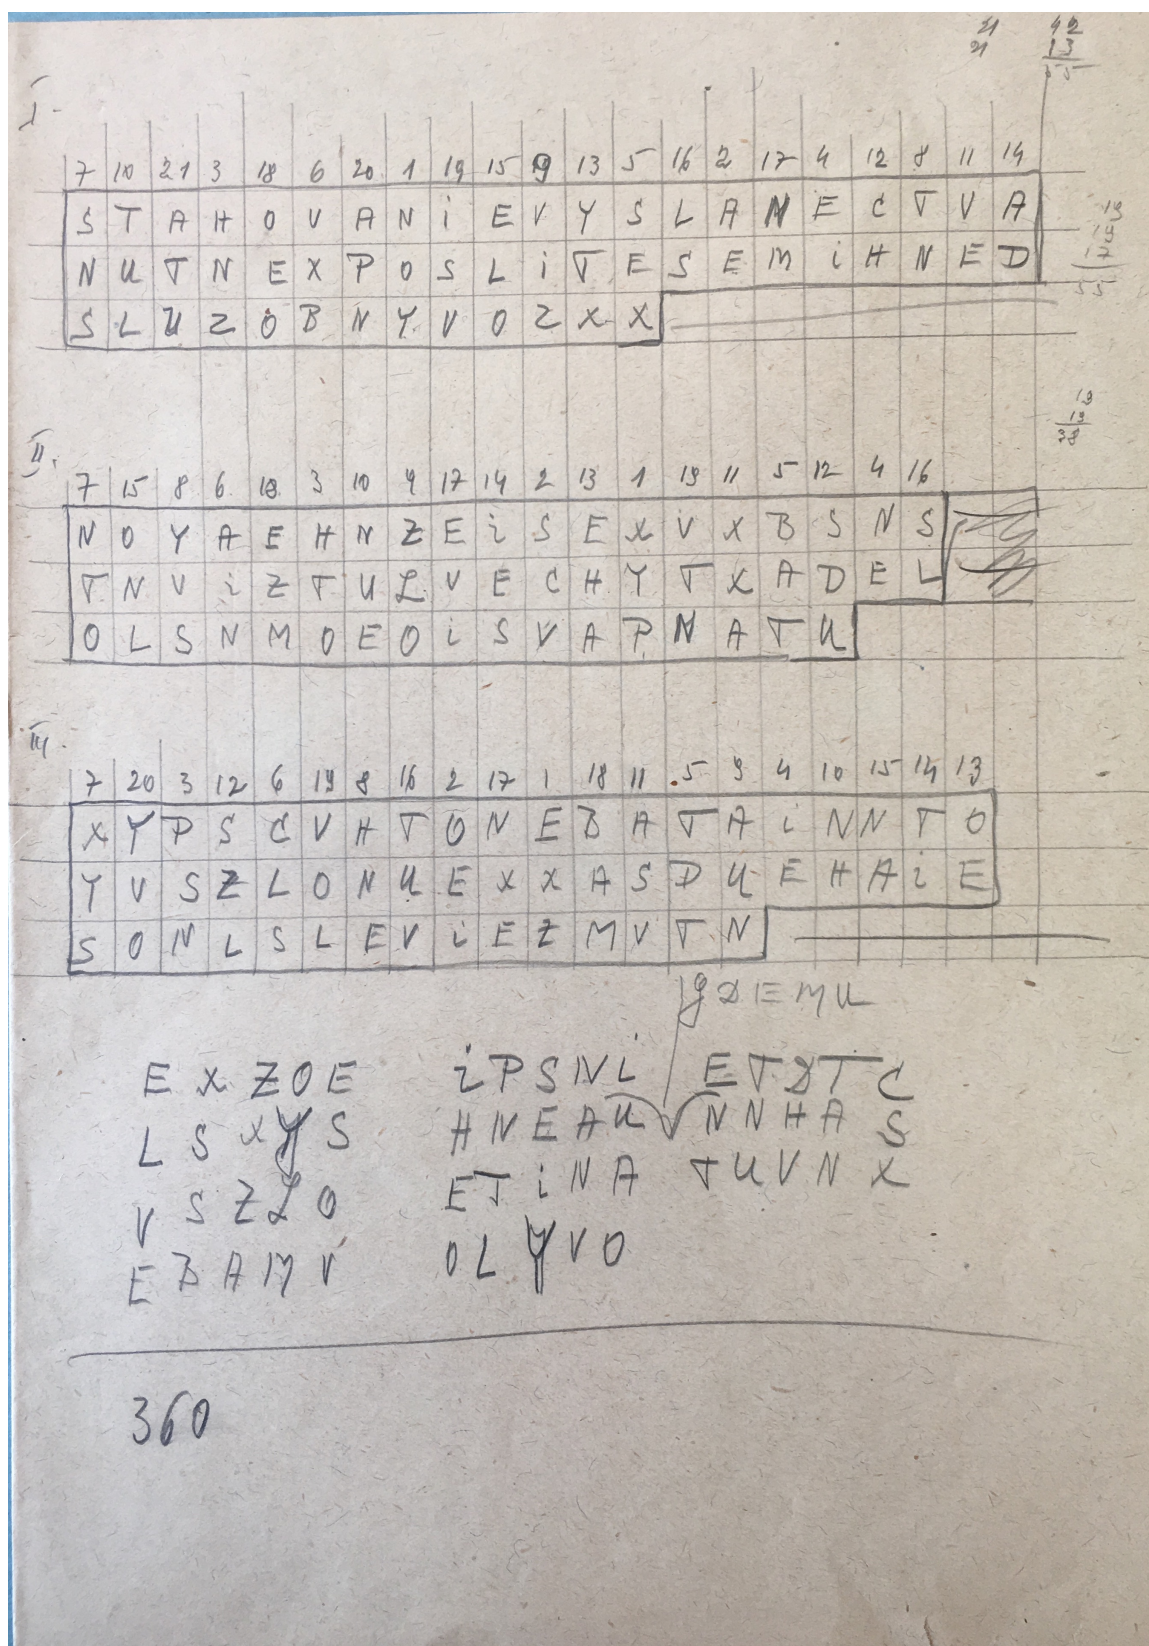 21 42
21 13
55
I.
7 10 21 3 18 6 20 1 19 15 9 13 5 16 2 17 4 12 8 11 14
S T A H O V A N i E V Y S L A N E C T V A
N U T N E X P O S L i T E S E M i H N E D
S L U Z O B N Y V O Z X X
55
19
19
38
II.
7 15 8 6 18 3 10 9 17 14 2 13 1 19 11 5 12 4 16
N O Y A E H N Z E i S E X V X B S N S
T N V i Z T U L V E C H Y T X A D E L
O L S N M O E O i S V A P N A T U
III.
7 20 3 12 6 19 8 16 2 17 1 18 11 5 9 4 10 15 14 13
X Y P S C V H T O N E B A T A i N N T O
Y V S Z L O N U E X X A S D U E H A i E
S O N L S L E V i E Z M V T N
gDEMU
EXZOE iPSNi ETDTC
LSXYS HNEAU NNHAS
VSZLO ETiNA TUVNX
EBAMV OLYVO
360